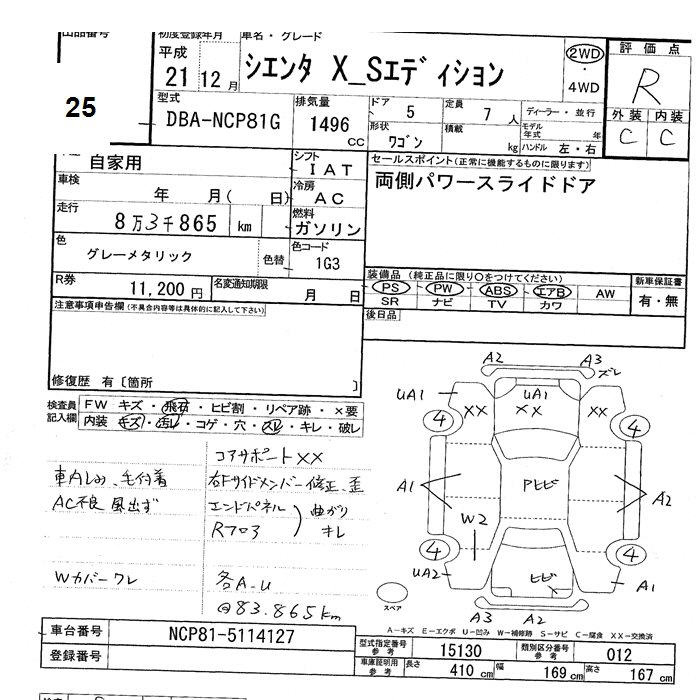 出品番号 初度登録年月 車名・グレード
25
平成
21 12月
シエンタ X_Sエディション
2WD
・
4WD
評価点
R
外装 内装
C C
型式
DBA-NCP81G
排気量
1496 CC
ドア 5
定員 7人
ディーラー・並行
形状 ワゴン
積載 kg
モデル年式 年
ハンドル 左・右
自家用
シフト
I AT
車検
年 月( 日)
冷房
AC
走行
8万3千865 km
燃料
ガソリン
色
グレーメタリック
色替
色コード
1G3
R券
11,200円
名変通知期限
月 日
セールスポイント(正常に機能するものに限ります)
両側パワースライドドア
装備品(純正品に限り○をつけてください)
PS PW ABS エアB AW
SR ナビ TV カワ
新車保証書
有・無
後日品
注意事項申告欄(不具合内容等は具体的に記入して下さい)
修復歴 有〔箇所 〕
検査員記入欄
FW キズ・飛石・ヒビ割・リペア跡・×要
内装 キズ・汚レ・コゲ・穴・スレ・キレ・破レ
コアサポートXX
車内しみ、毛付着
右Fサイドメンバー修正、歪
AC不良 風出ず
エンドパネル
Rフロ3
曲がり
キレ
Wカバーワレ
各A.U
83.865km
A2 A3 ズレ
UA1 UA1
XX XX XX
4 4
A1 アトビ A2
W2
4 4
UA2 ヒビ A1
A3 A2
スペア
A-キズ E-エクボ U-凹み W-補修跡 S-サビ C-腐食 XX-交換済
車台番号 NCP81-5114127
登録番号
型式指定番号 参考 15130
類別区分番号 参考 012
車庫証明用 参考 長さ 410 cm 幅 169 cm 高さ 167 cm